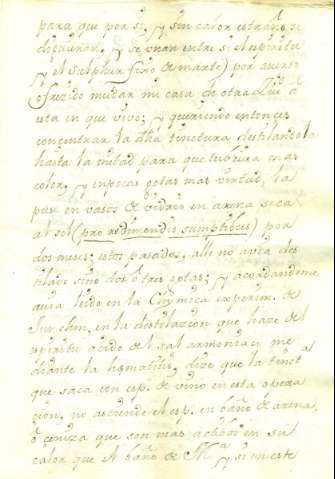 para que por si, y sin calor estraño se
disuuan, y se unan entre si el espiritu
y el sulphur fixo de marte) por averse
ofrezido mudar mi casa en otra Qui à
esta en que vivo; y queriendo entonces
concentrar la dha tinctura destilandola
hasta la mitad para que tubiera mas
color, y en pocas gotas mas virtud, la
puse en vasos de vidrio en arena seca
al sol (pro redimendis sumptibus) por
dos meses; estos pasados, alle no avia des
tilado sino dos ò tres gotas; y acordandome
avia leido en la Chymica experim. de
en la destilazion que haze del
espiritu acido del sal armoniaci me
diante la hæmatitis, dize que la tinct.
que saca con esp. de vino en esta opera
cion, no asciende el esp. en baño de arena,
ò ceniza que son mas activos en su
calor que el baño de M.ª y si en este